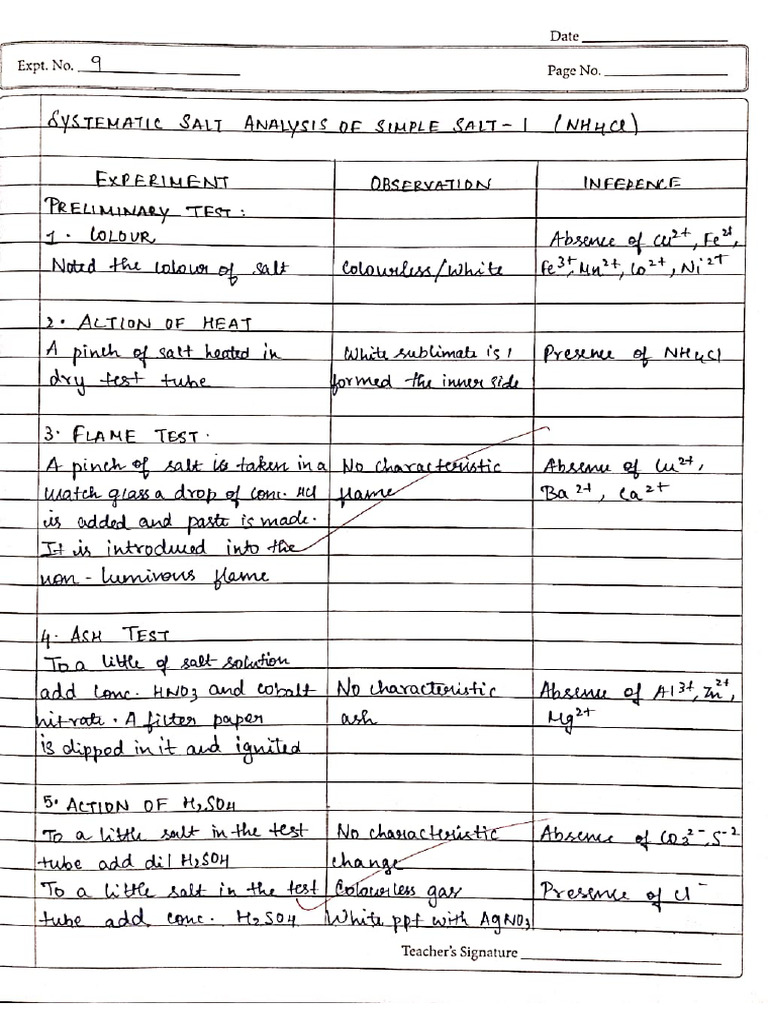 Date
Expt. No. 9
Page No.
SYSTEMATIC SALT ANALYSIS OF SIMPLE SALT-1 (NH4Cl)
EXPERIMENT OBSERVATION INFERENCE
PRELIMINARY TEST:
1. COLOUR Absence of Cu2+, Fe2+,
Noted the colour of salt Colourless/White Fe3+, Mn2+, Co2+, Ni2+
2. ACTION OF HEAT
A pinch of salt heated in White sublimate is Presence of NH4Cl
dry test tube formed the inner side
3. FLAME TEST.
A pinch of salt is taken in a No characteristic Absence of Cu2+,
watch glass a drop of conc. HCl flame Ba2+, Ca2+
is added and paste is made.
It is introduced into the
non-luminous flame
4. ASH TEST
To a little of salt solution
add conc. HNO3 and cobalt No characteristic Absence of Al3+, Zn2+,
nitrate. A filter paper ash Mg2+
is dipped in it and ignited
5. ACTION OF H2SO4
To a little salt in the test No characteristic Absence of CO3 2-, S-2
tube add dil H2SO4 change
To a little salt in the test Colourless gas Presence of Cl-
tube add conc. H2SO4 White ppt with AgNO3
Teacher's Signature